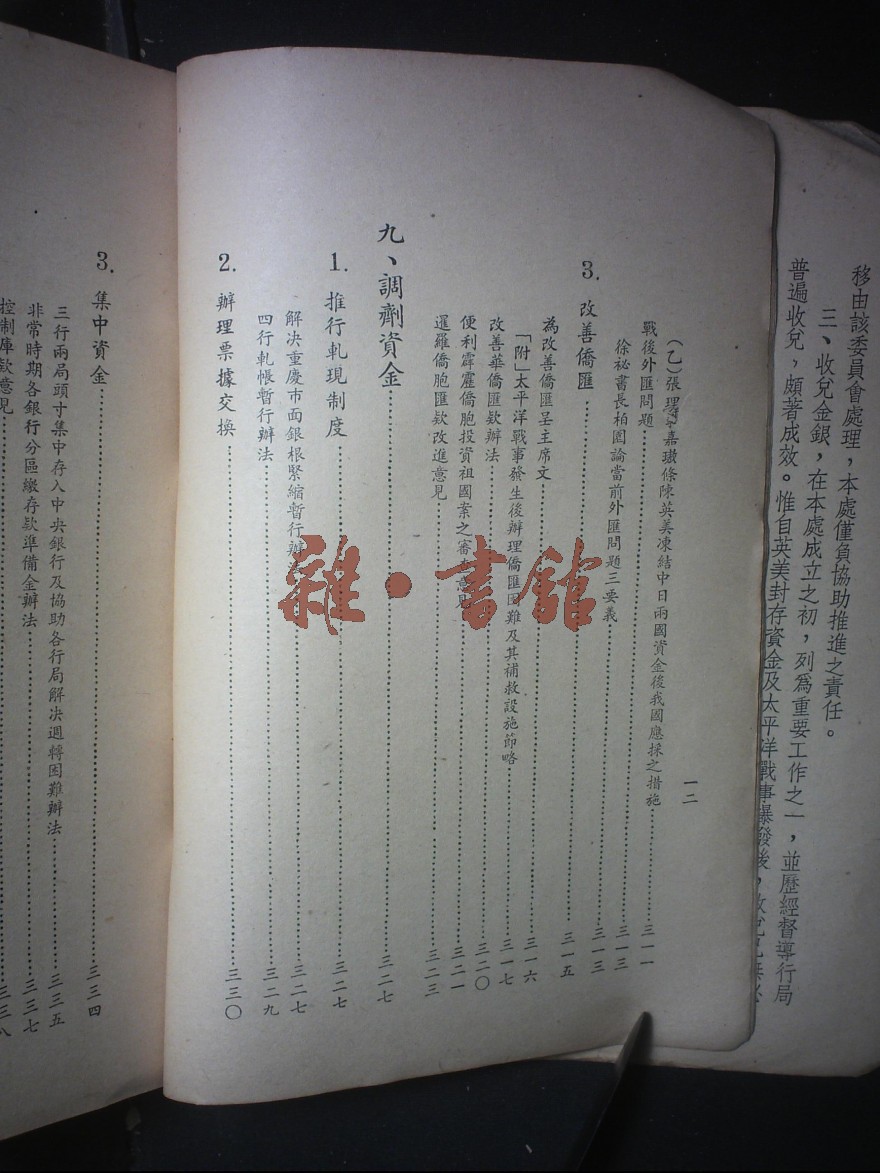 移由該委員會處理，本處僅負協助推進之責任。
三、收兌金銀，在本處成立之初，列爲重要工作之一，並歷經督導行局
普遍收兌，頗著成效。惟自英美封存資金及太平洋戰事爆發後，
一二
（乙）張理事嘉璈條陳英美凍結中日兩國資金後我國應採之措施……三一一
戰後外匯問題……三一三
徐祕書長柏園論當前外匯問題三要義……三一三
3. 改善僑匯……三一五
為改善僑匯呈主席文……三一六
「附」太平洋戰事發生後辦理僑匯困難及其補救設施節略……三一七
改善華僑匯款辦法……三二〇
便利霹靂僑胞投資祖國案之審查意見……三二一
暹羅僑胞匯款改進意見……三二三
九、調劑資金……三二七
1. 推行軋現制度……三二七
解決重慶市面銀根緊縮暫行辦……三二七
四行軋帳暫行辦法……三二九
2. 辦理票據交換……三三〇
3. 集中資金……三三四
三行兩局頭寸集中存入中央銀行及協助各行局解決週轉困難辦法……三三五
非常時期各銀行分區繳存款準備金辦法……三三七
控制庫款意見……三三八
雜·書館